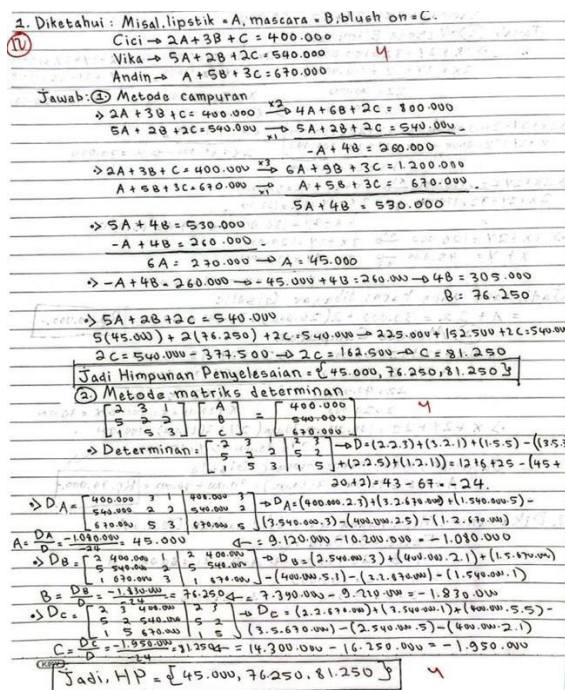 1. Diketahui : Misal.lipstik = A, mascara = B, blush on = C.
IV
Cici → 2A + 3B + C = 400.000
Vika → 5A + 2B + 2C = 540.000
Andin → A + 5B + 3C = 670.000
Jawab: ① Metode campuran
•> 2A + 3B + C = 400.000 x2→ 4A + 6B + 2C = 800.000
5A + 2B + 2C = 540.000 x1→ 5A + 2B + 2C = 540.000 -
-A + 4B = 260.000
•> 2A + 3B + C = 400.000 x3→ 6A + 9B + 3C = 1.200.000
A + 5B + 3C = 670.000 x1→ A + 5B + 3C = 670.000
5A + 4B = 530.000
•> 5A + 4B = 530.000
-A + 4B = 260.000 -
6A = 270.000 → A = 45.000
•> -A + 4B = 260.000 → -45.000 + 4B = 260.000 → 4B = 305.000
B = 76.250
•> 5A + 2B + 2C = 540.000
5(45.000) + 2(76.250) + 2C = 540.000 → 225.000 + 152.500 + 2C = 540.000
2C = 540.000 - 377.500 → 2C = 162.500 → C = 81.250
Jadi Himpunan Penyelesaian = {45.000, 76.250, 81.250}
②. Metode matriks determinan
[2 3 1] [A] = [400.000]
[5 2 2] [B] [540.000]
[1 5 3] [670.000]
•> Determinan = [2 3 1 | 2 3 → D = (2.2.3) + (3.2.1) + (1.5.5) - ((3.5.3)
5 2 2 | 5 2 + (2.2.5) + (1.2.1)) = 12 + 6 + 25 - (45 +
1 5 3 | 1 5] 20 + 2) = 43 - 67 = -24.
•> DA = [400.000 3 1 | 400.000 3 → DA = (400.000.2.3) + (3.2.670.000) + (1.540.000.5) -
540.000 2 2 | 540.000 2 (3.540.000.3) - (400.000.2.5) - (1.2.670.000)
670.000 5 3 | 670.000 5]
A = DA/D = -1.080.000/-24 = 45.000 = 9.120.000 - 10.200.000 = -1.080.000
•> DB = [2 400.000 1 | 2 400.000 → DB = (2.540.000.3) + (400.000.2.1) + (1.5.670.000)
5 540.000 2 | 5 540.000 - (400.000.5.1) - (2.2.670.000) - (1.540.000.1)
1 670.000 3 | 1 670.000]
B = DB/D = -1.830.000/-24 = 76.250 = 7.390.000 - 9.210.000 = -1.830.000
•> DC = [2 3 400.000 | 2 3 → DC = (2.2.670.000) + (3.540.000.1) + (400.000.5.5) -
5 2 540.000 | 5 2 (3.5.670.000) - (2.540.000.5) - (400.000.2.1)
1 5 670.000 | 1 5]
C = DC/D = -1.950.000/-24 = 81.250 = 14.300.000 - 16.250.000 = -1.950.000
Jadi, HP = {45.000, 76.250, 81.250}